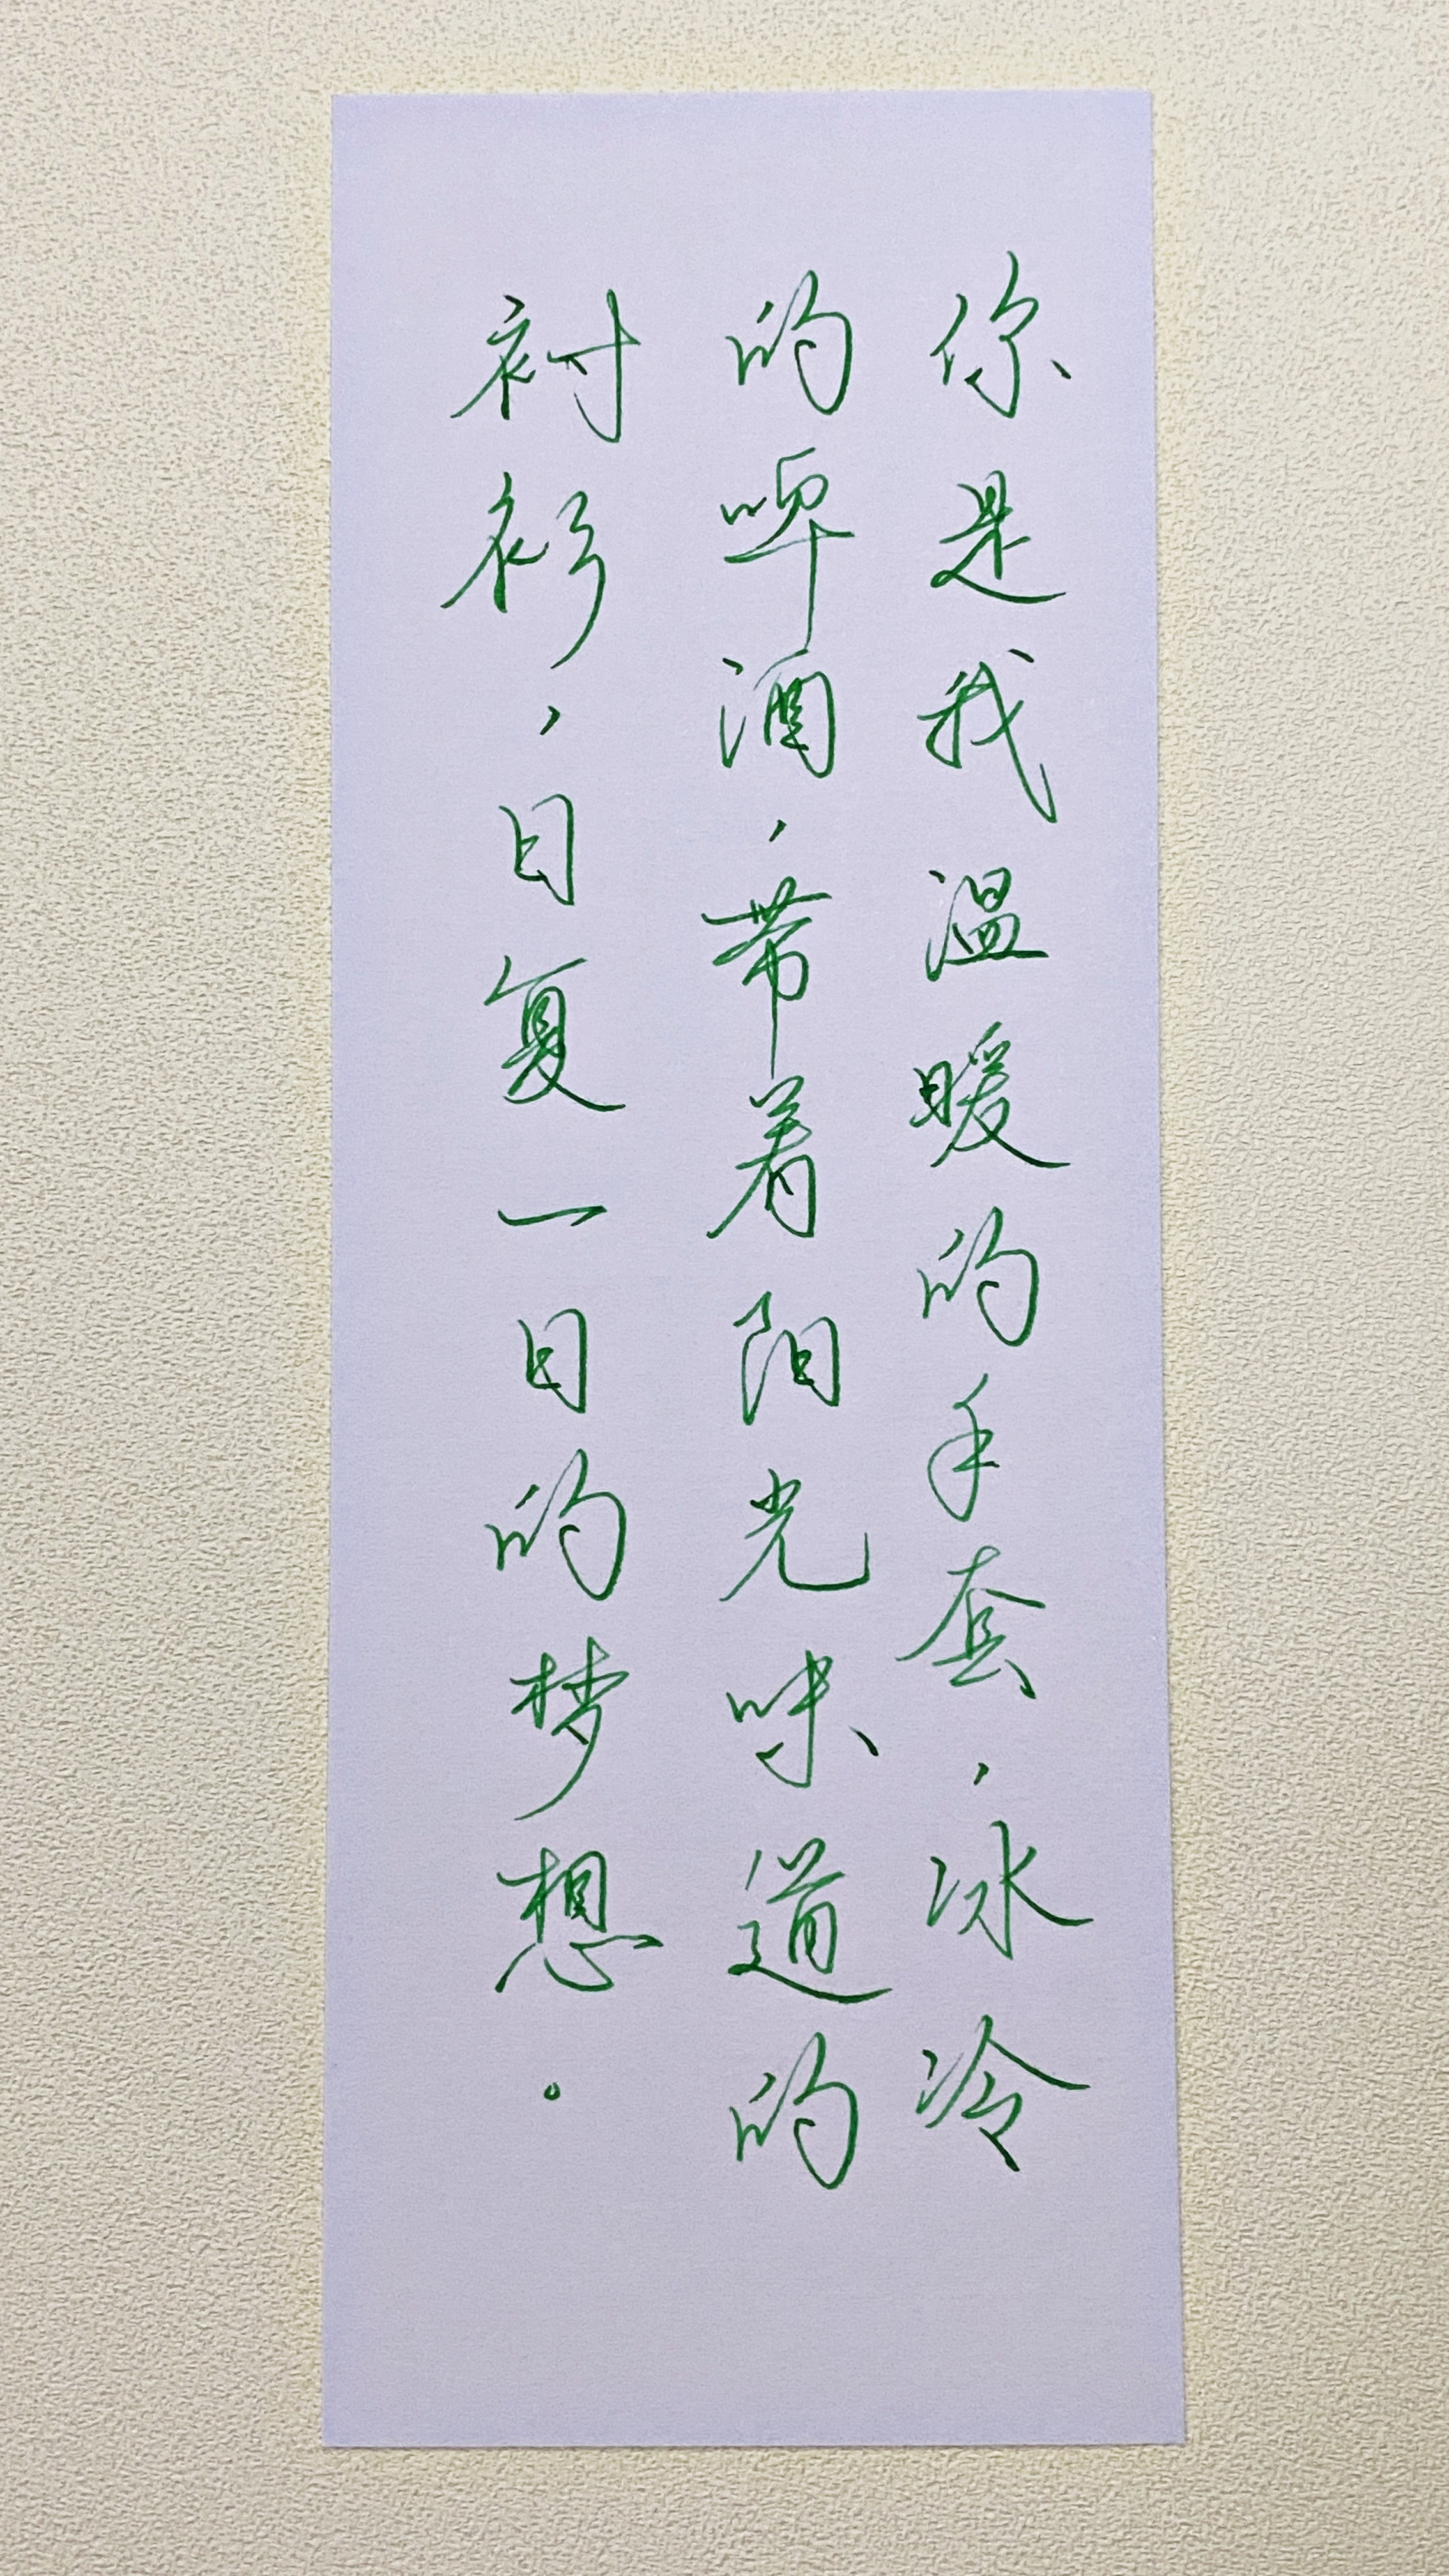 你是我温暖的手套，冰冷
的啤酒，带着阳光味道的
衬衫，日复一日的梦想。